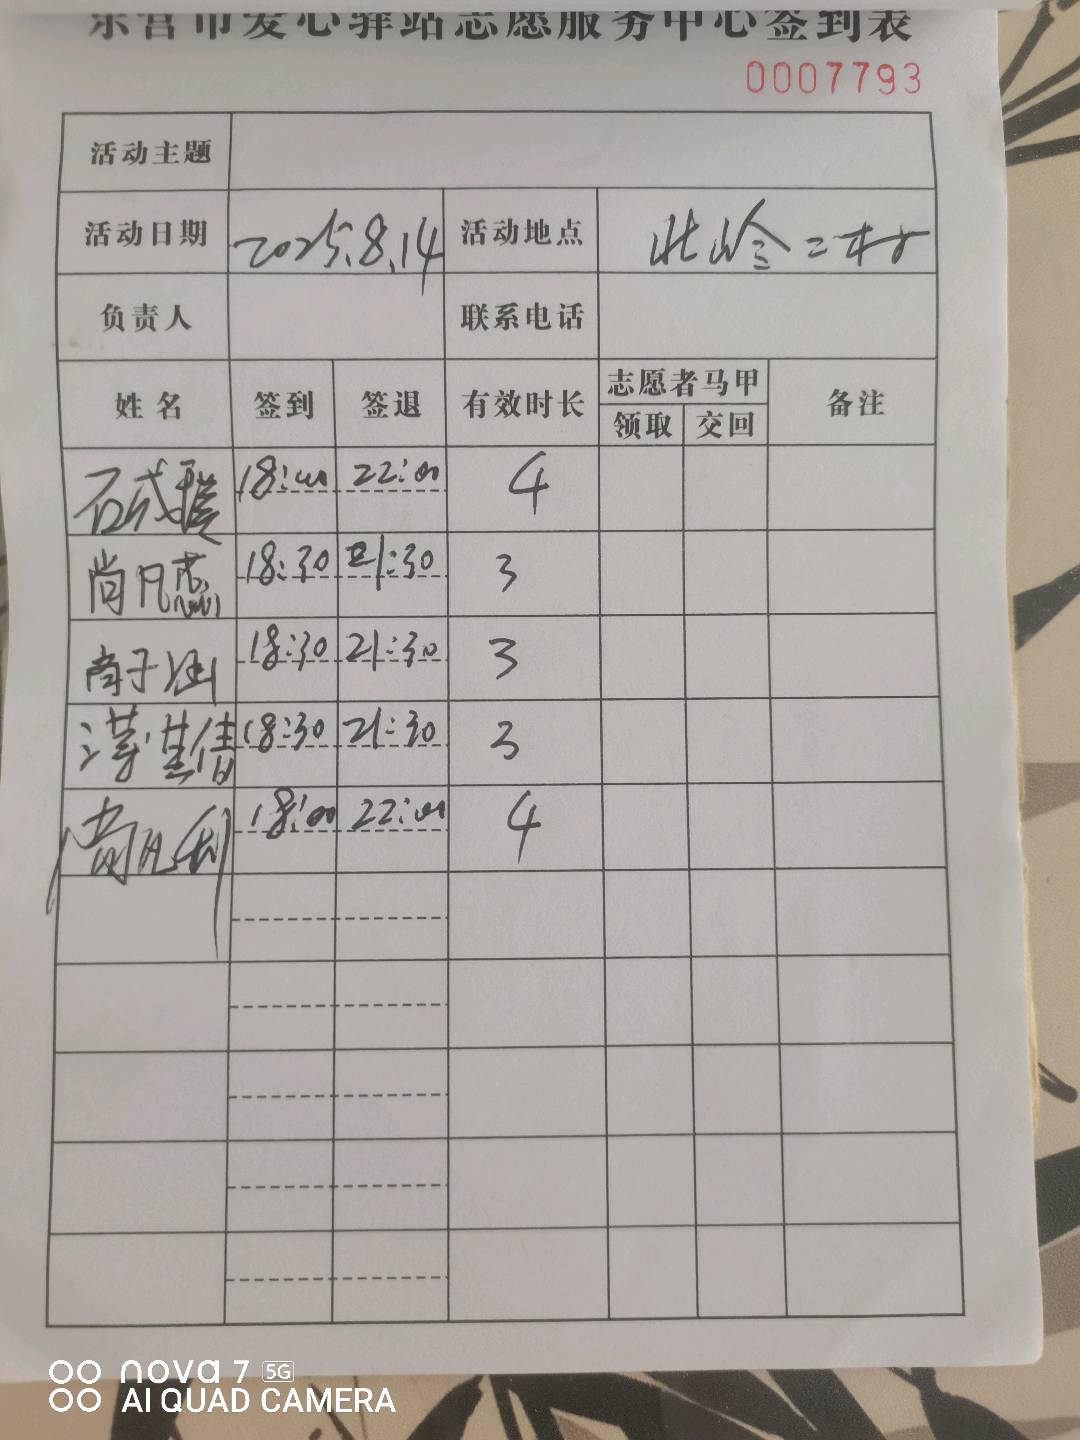 东营市爱心驿站志愿服务中心签到表
0007793
活动主题
活动日期 2025.8.14 活动地点 北岭二村
负责人 联系电话
姓名 签到 签退 有效时长 志愿者马甲 备注
领取 交回
石成 18:00 22:00 4
尚凡志 18:30 21:30 3
尚子涵 18:30 21:30 3
18:30 21:30 3
尚凡利 18:00 22:00 4
nova 7 5G
AI QUAD CAMERA